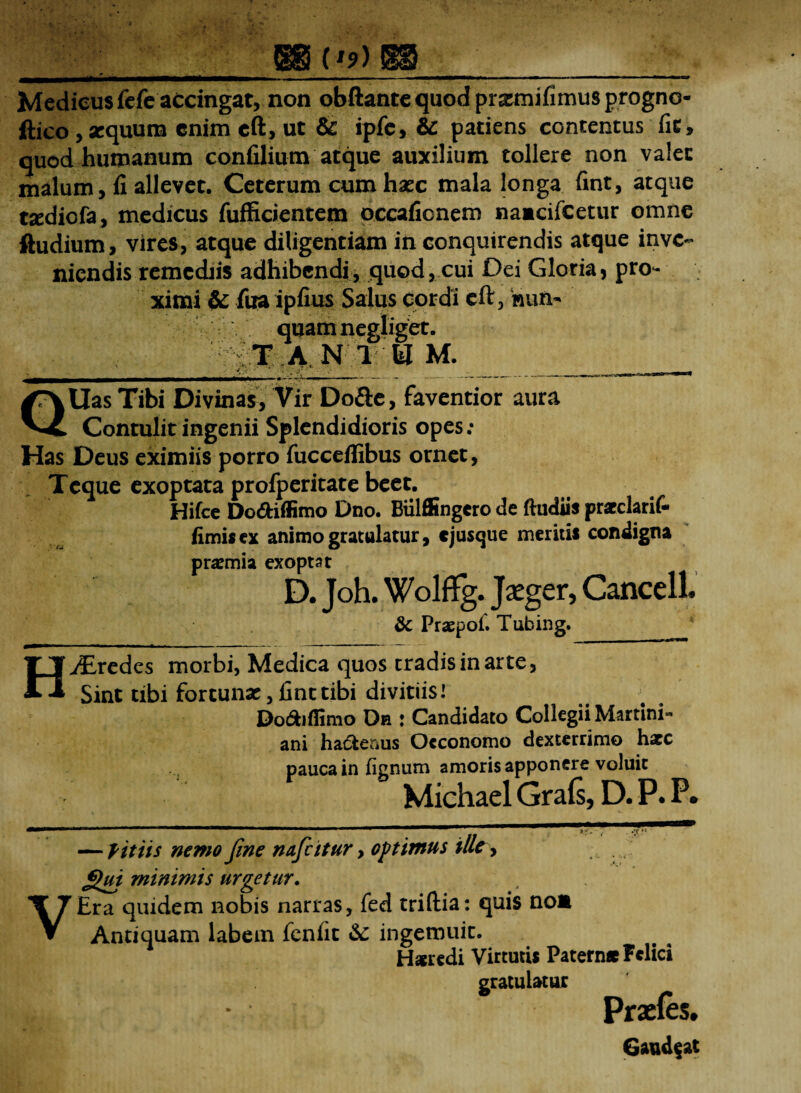 (19)
Medicus ſeſe accingat, non obſtante quod præmiſimus progno-
ſtico, æquum enim eſt, ut & ipſe, & patiens contentus ſit,
quod humanum conſilium atque auxilium tollere non valet
malum, ſi allevet. Ceterum cum hæc mala longa ſint, atque
tædioſa, medicus ſufficientem occaſionem nanciſcetur omne
ſtudium, vires, atque diligentiam in conquirendis atque inve-
niendis remediis adhibendi, quod, cui Dei Gloria, pro-
ximi & ſua ipſius Salus cordi eſt, nun-
quam negliget.
TANTUM.
QUas Tibi Divinas, Vir Docte, faventior aura
Contulit ingenii Splendidioris opes:
Has Deus eximiis porro ſucceſſibus ornet,
Teque exoptata proſperitate beet.
Hiſce Doctiſſimo Dno. Bülffingero de ſtudiis præclariſ-
ſimis ex animo gratulatur, ejusque meritis condigna
præmia exoptat
D. Joh. Wolffg. Jæger, Cancell.
& Præpoſ. Tubing.
HÆredes morbi, Medica quos tradis in arte,
Sint tibi fortunæ, ſint tibi divitiis!
Doctiſſimo Dn : Candidato Collegii Martini-
ani hactenus Oeconomo dexterrimo hæc
pauca in ſignum amoris apponere voluit
Michael Graſs, D. P. P.
— Vitiis nemo ſine naſcitur, optimus ille,
Qui minimis urgetur.
VEra quidem nobis narras, ſed triſtia: quis non
Antiquam labem ſenſit & ingemuit.
Hæredi Virtutis Paternæ Felici
gratulatur
Præſes.
Gaudęat